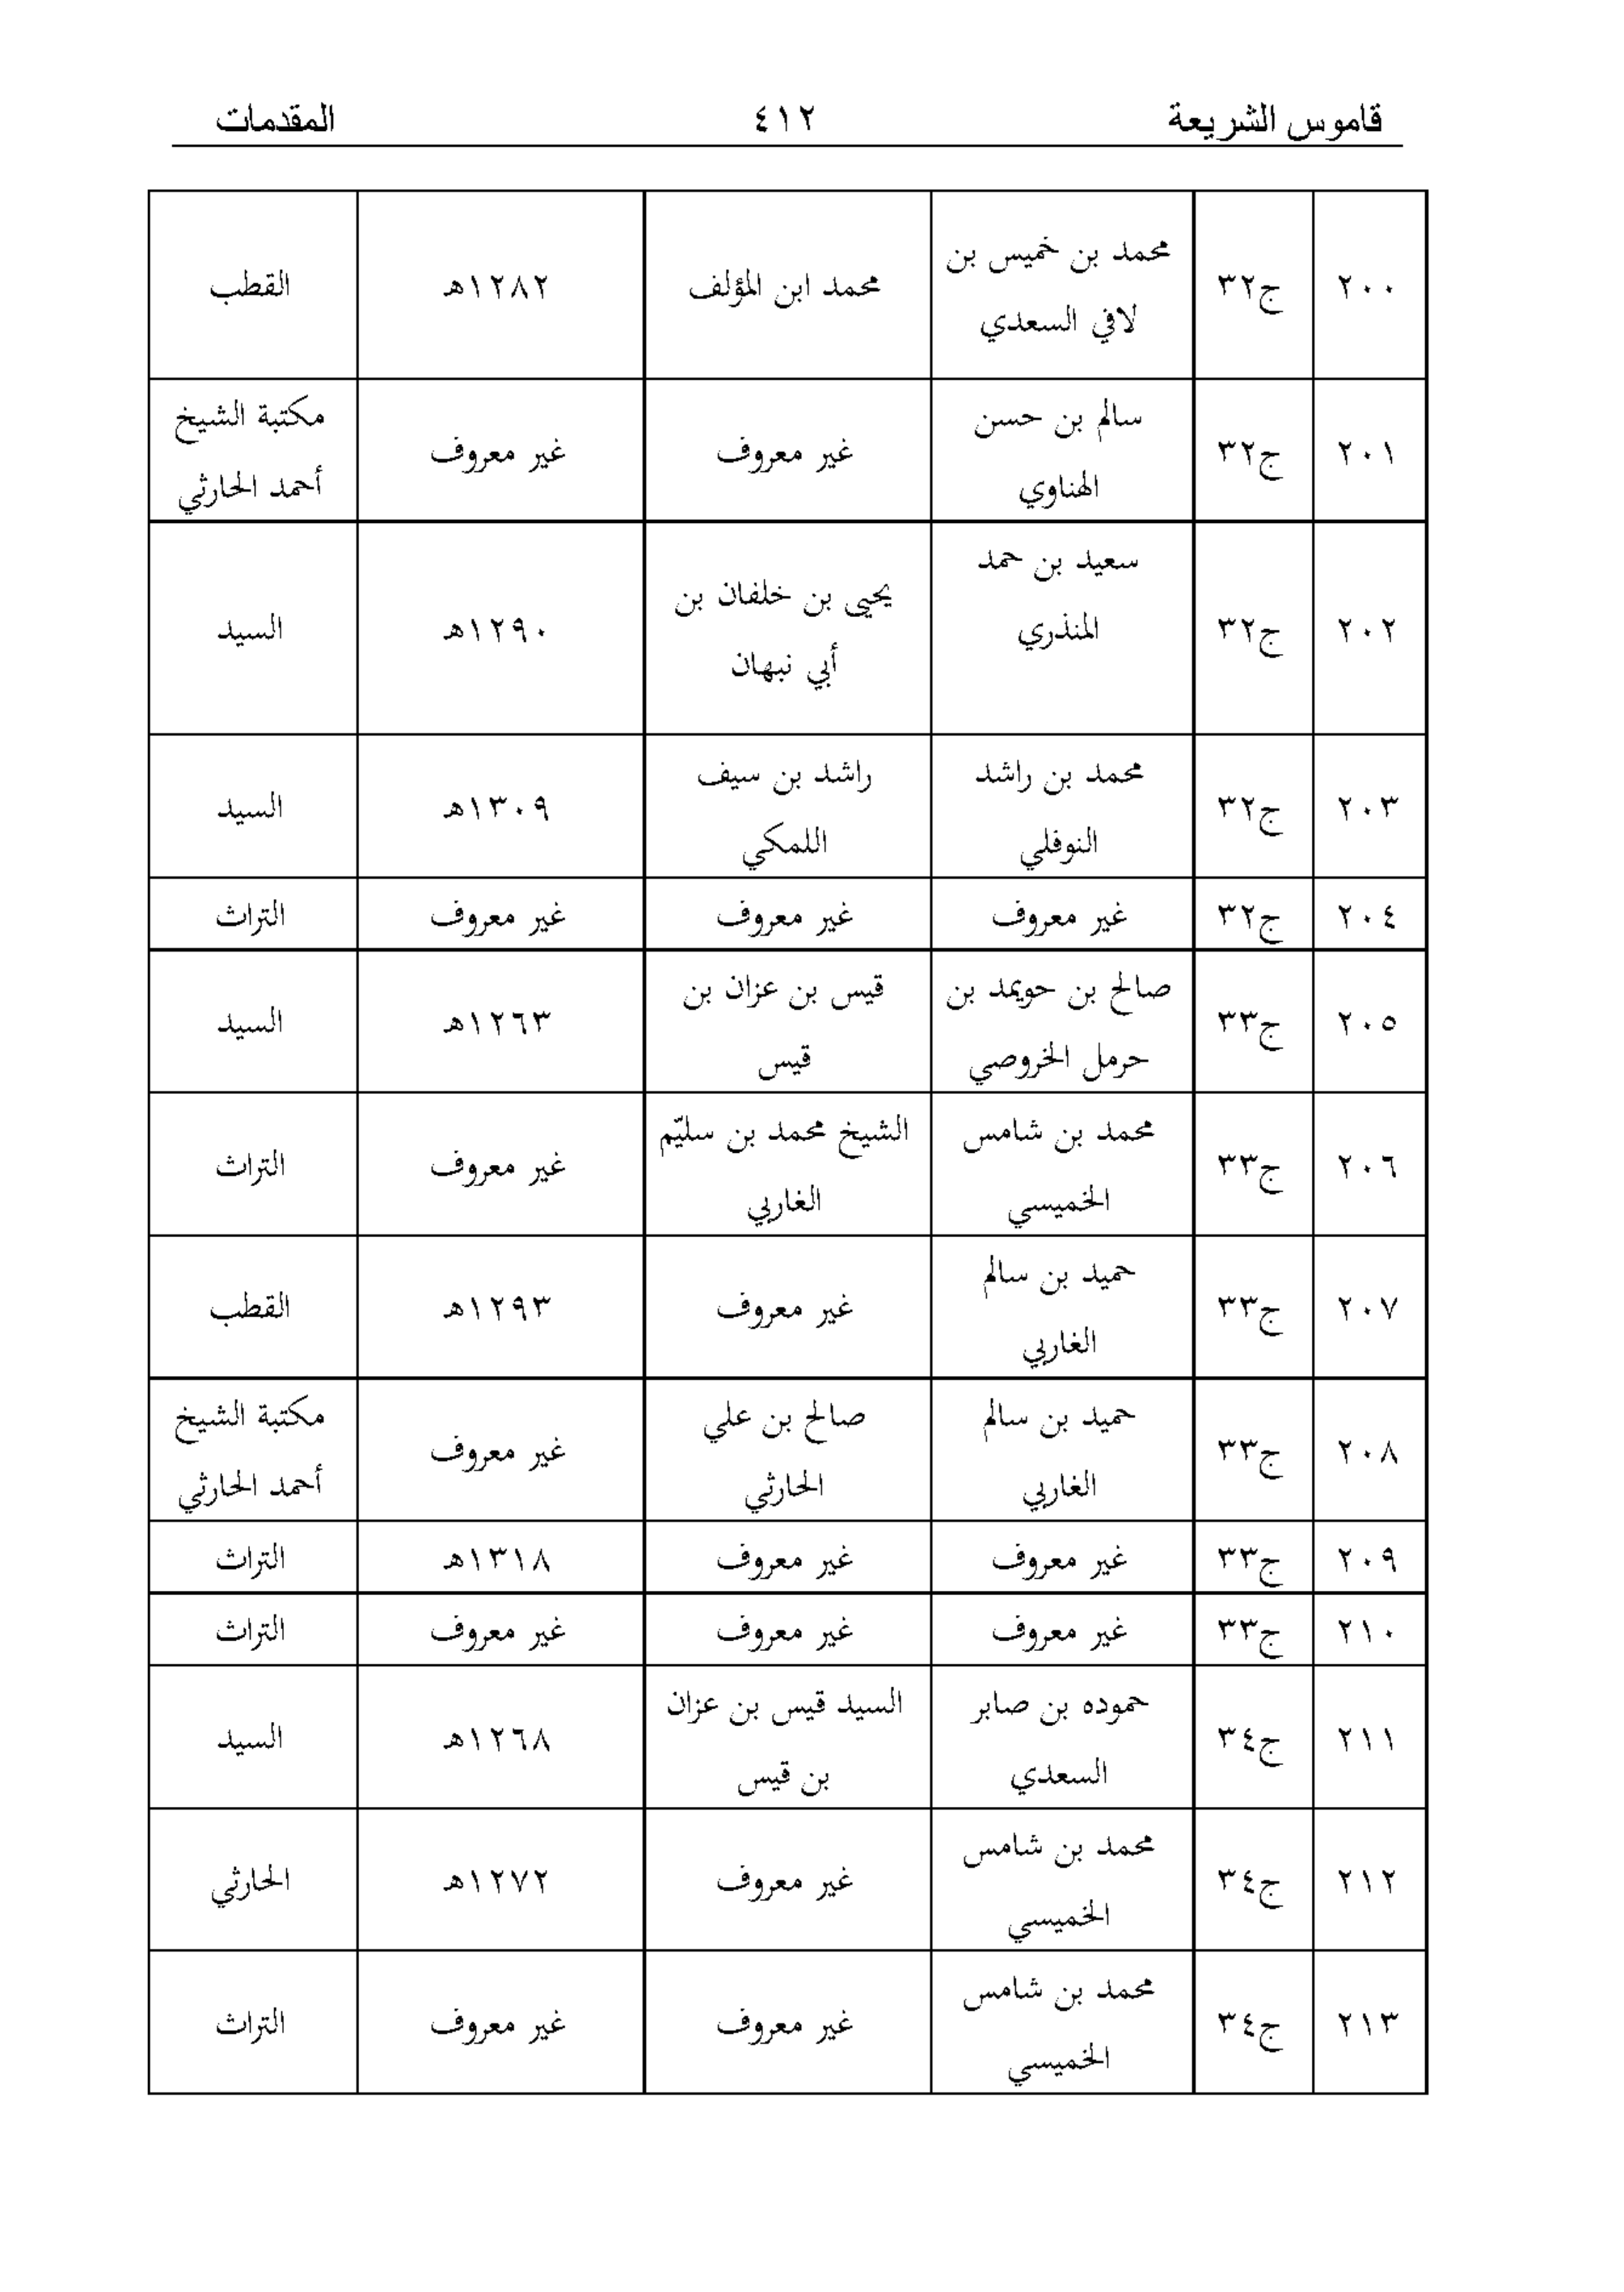 قاموس الشريعة ٤١٢ المقدمات
٢٠٠ ج٣٢ محمد بن خميس بن لافي السعدي محمد ابن المؤلف ١٢٨٢هـ القطب
٢٠١ ج٣٢ سالم بن حسن الهناوي غير معروف غير معروف مكتبة الشيخ أحمد الحارثي
٢٠٢ ج٣٢ سعيد بن حمد المنذري يحيى بن خلفان بن أبي نبهان ١٢٩٠هـ السيد
٢٠٣ ج٣٢ محمد بن راشد النوفلي راشد بن سيف اللمكي ١٣٠٩هـ السيد
٢٠٤ ج٣٢ غير معروف غير معروف غير معروف التراث
٢٠٥ ج٣٣ صالح بن حويمد بن حرمل الخروصي قيس بن عزان بن قيس ١٢٦٣هـ السيد
٢٠٦ ج٣٣ محمد بن شامس الخميسي الشيخ محمد بن سليّم الغاربي غير معروف التراث
٢٠٧ ج٣٣ حميد بن سالم الغاربي غير معروف ١٢٩٣هـ القطب
٢٠٨ ج٣٣ حميد بن سالم الغاربي صالح بن علي الحارثي غير معروف مكتبة الشيخ أحمد الحارثي
٢٠٩ ج٣٣ غير معروف غير معروف ١٣١٨هـ التراث
٢١٠ ج٣٣ غير معروف غير معروف غير معروف التراث
٢١١ ج٣٤ حموده بن صابر السعدي السيد قيس بن عزان بن قيس ١٢٦٨هـ السيد
٢١٢ ج٣٤ محمد بن شامس الخميسي غير معروف ١٢٧٢هـ الحارثي
٢١٣ ج٣٤ محمد بن شامس الخميسي غير معروف غير معروف التراث